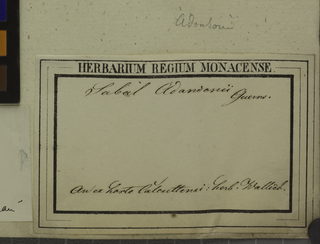 Adansonii
HERBARIUM REGIUM MONACENSE.
Sabal Adansonii Guerns.
An ex horto Calcuttensi: herb: Wallich.